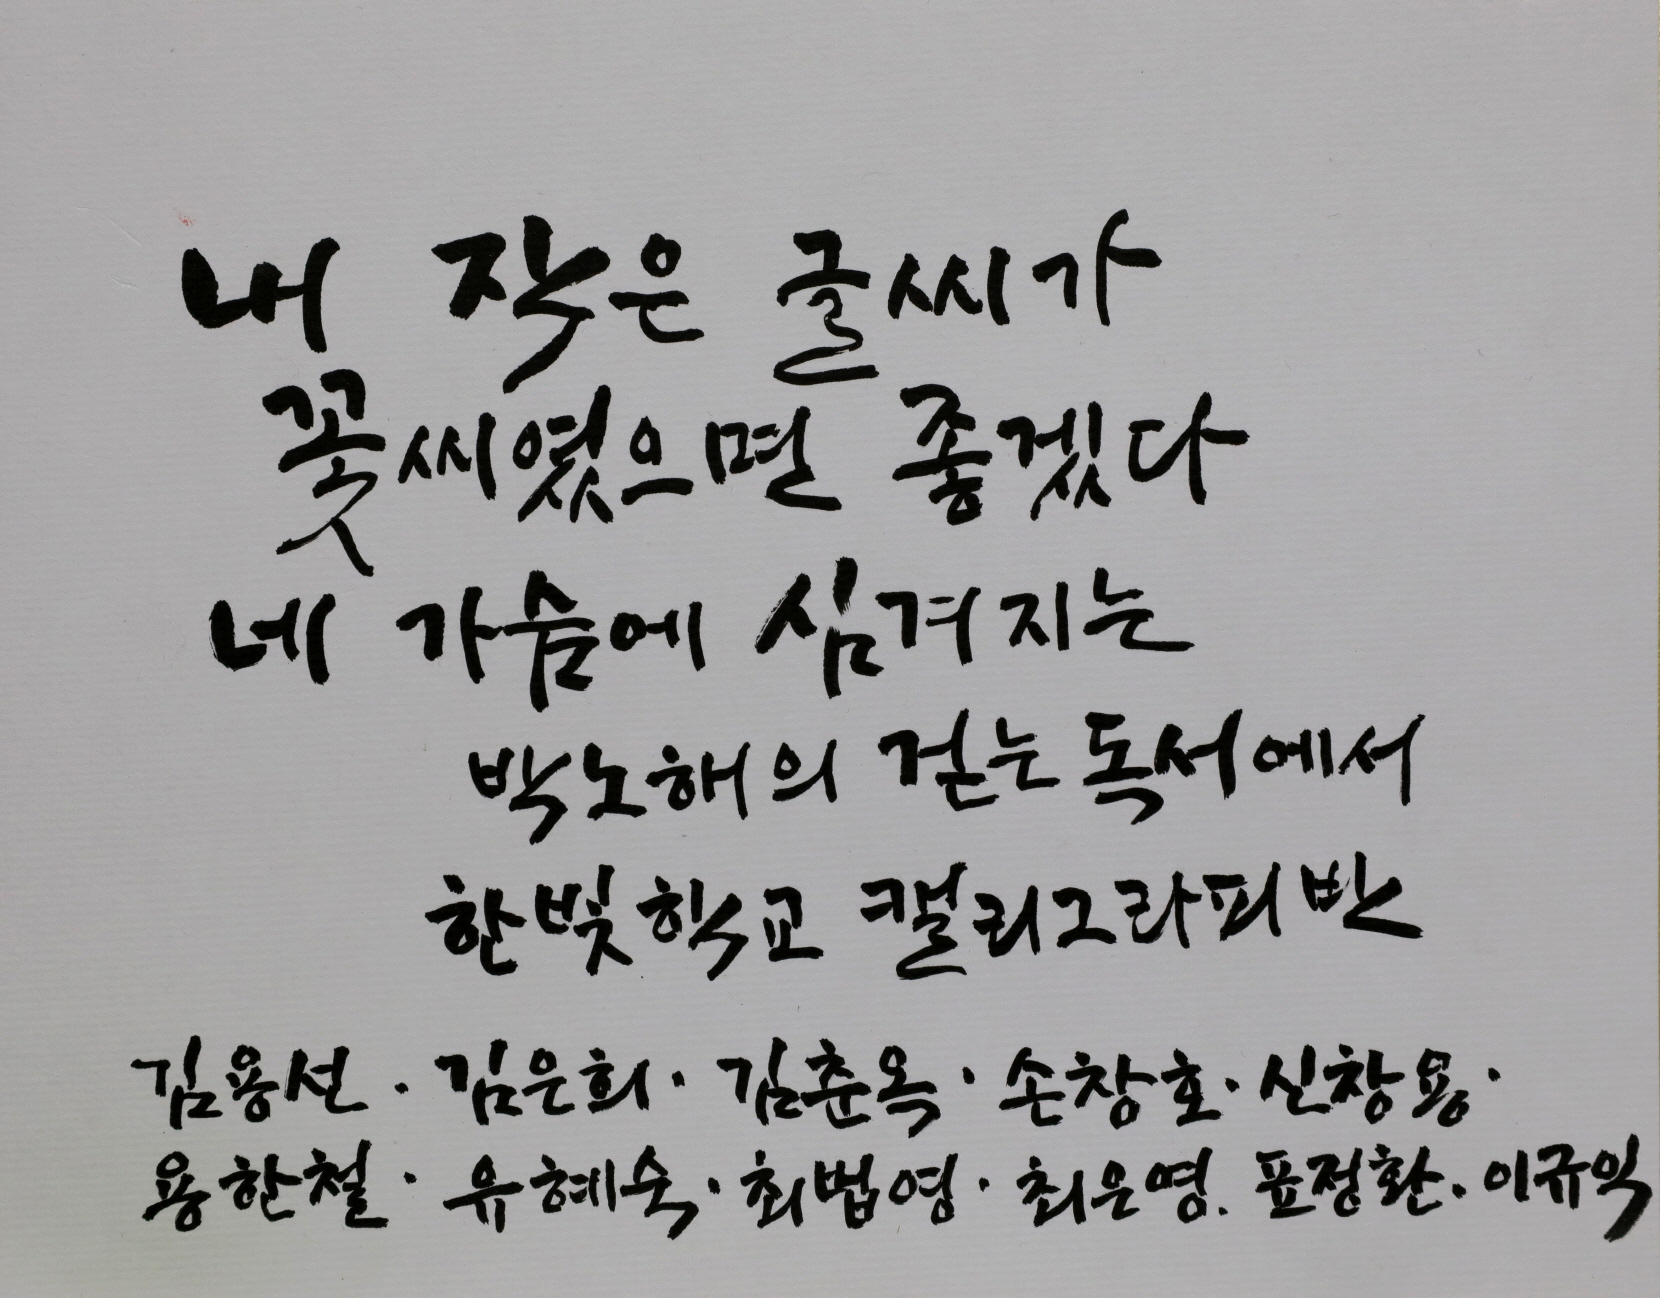 내 작은 글씨가
꽃씨였으면 좋겠다
네 가슴에 심겨지는
박노해의 걷는 독서에서
한빛학교 캘리그라피반
김용선 · 김은희 · 김춘옥 · 손창호 · 신창용 ·
용한철 · 유혜숙 · 최법영 · 최은영 . 표정환 . 이규익